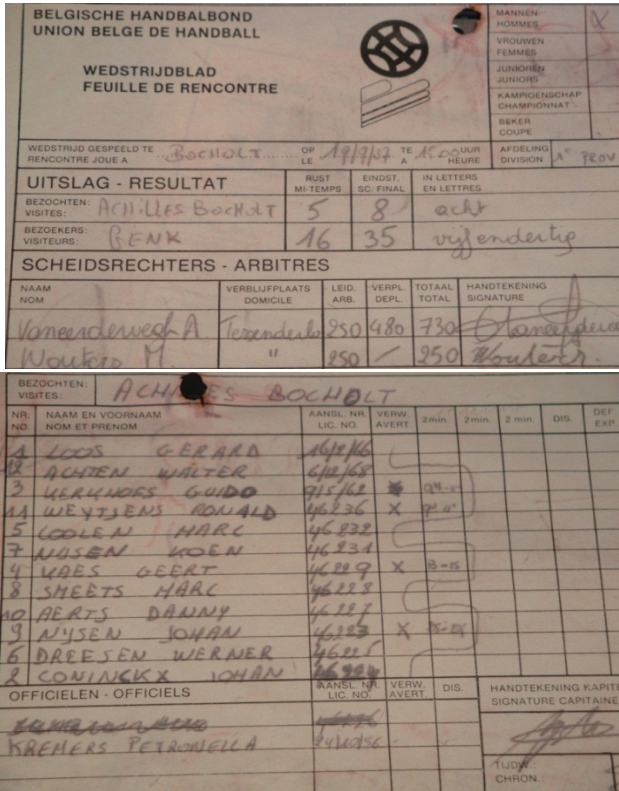 BELGISCHE HANDBALBOND
UNION BELGE DE HANDBALL
WEDSTRIJDBLAD
FEUILLE DE RENCONTRE
MANNEN
HOMMES X
VROUWEN
FEMMES
JUNIOREN
JUNIORS
KAMPIOENSCHAP
CHAMPIONNAT
BEKER
COUPE
WEDSTRIJD GESPEELD TE OP TE UUR AFDELING
RENCONTRE JOUE A BOCHOLT LE A 15.00 HEURE DIVISION 1° PROV
UITSLAG - RESULTAT RUST EINDST. IN LETTERS
MI-TEMPS SC. FINAL EN LETTRES
BEZOCHTEN:
VISITES: ACHILLES BOCHOLT 5 8 acht
BEZOEKERS:
VISITEURS: GENK 16 35 vijfendertig
SCHEIDSRECHTERS - ARBITRES
NAAM VERBLIJFPLAATS LEID. VERPL. TOTAAL HANDTEKENING
NOM DOMICILE ARB. DEPL. TOTAL SIGNATURE
A Tessenderlo 250 480 730
Wouters M. " 250 / 250 Wouters
BEZOCHTEN:
VISITES: ACHILLES BOCHOLT
NR. NAAM EN VOORNAAM AANSL. NR. VERW. 2 min. 2 min. 2 min. DIS. DEF.
NO. NOM ET PRENOM LIC. NO. AVERT. EXP.
1 LOOS GERARD 16/2/66
12 ACHTEN WALTER 6/12/68
3 KERKHOFS GUIDO 9/5/62
11 WEYTJENS RONALD 46236 X
5 COOLEN MARC 46232
7 NIJSEN KOEN 46231
4 VAES GEERT 46229 X
8 SMEETS MARC 46228
10 AERTS DANNY 46227
9 NIJSEN JOHAN 46223 X
6 DREESEN WERNER 46225
2 CONINGKX JOHAN
OFFICIELEN - OFFICIELS AANSL. NR. VERW. DIS. HANDTEKENING KAPIT
LIC. NO. AVERT. SIGNATURE CAPITAINE
KREMERS PETRONELLA 24/10/56
TIJDW.:
CHRON.: